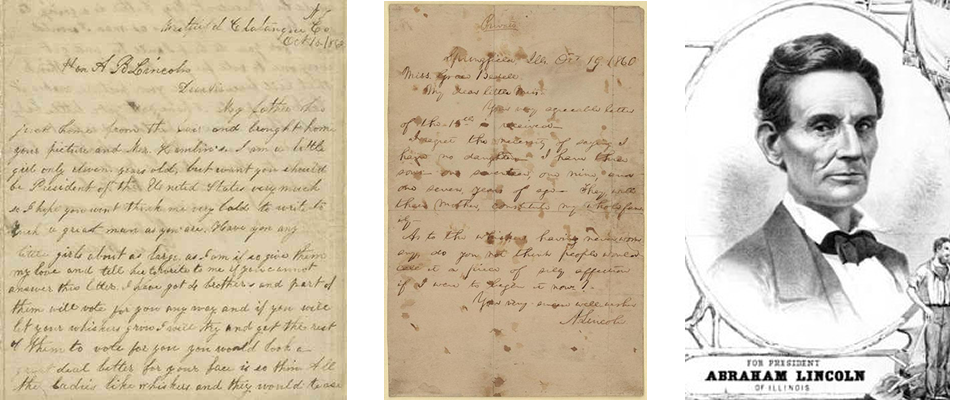 N Y
Westfield Chatauque Co
Oct 15. 1860
Hon A B Lincoln
Dear Sir
My father has
just home from the fair and brought home
your picture and Mr. Hamlin's. I am a little
girl only eleven years old, but want you should
be President of the United States very much
so I hope you wont think me very bold to write to
such a great man as you are. Have you any
little girls about as large as I am if so give them
my love and tell her to write to me if you cannot
answer this letter. I have got 4 brothers and part of
them will vote for you any way and if you will
let your whiskers grow I will try and get the rest
of them to vote for you you would look a
great deal better for your face is so thin. All
the ladies like whiskers and they would tease
Private
Springfield, Ills. Oct 19. 1860
Miss. Grace Bedell
My dear little Miss.
Your very agreeable letter
of the 15th is received.
I regret the necessity of saying I
have no daughters. I have three
sons – one seventeen, one nine, and
one seven, years of age. They, with
their mother, constitute my whole fam-
ily.
As to the whiskers, having never worn
any, do you not think people would
call it a piece of silly affection
if I were to begin it now?
Your very sincere well-wisher
A. Lincoln
FOR PRESIDENT
ABRAHAM LINCOLN
OF ILLINOIS